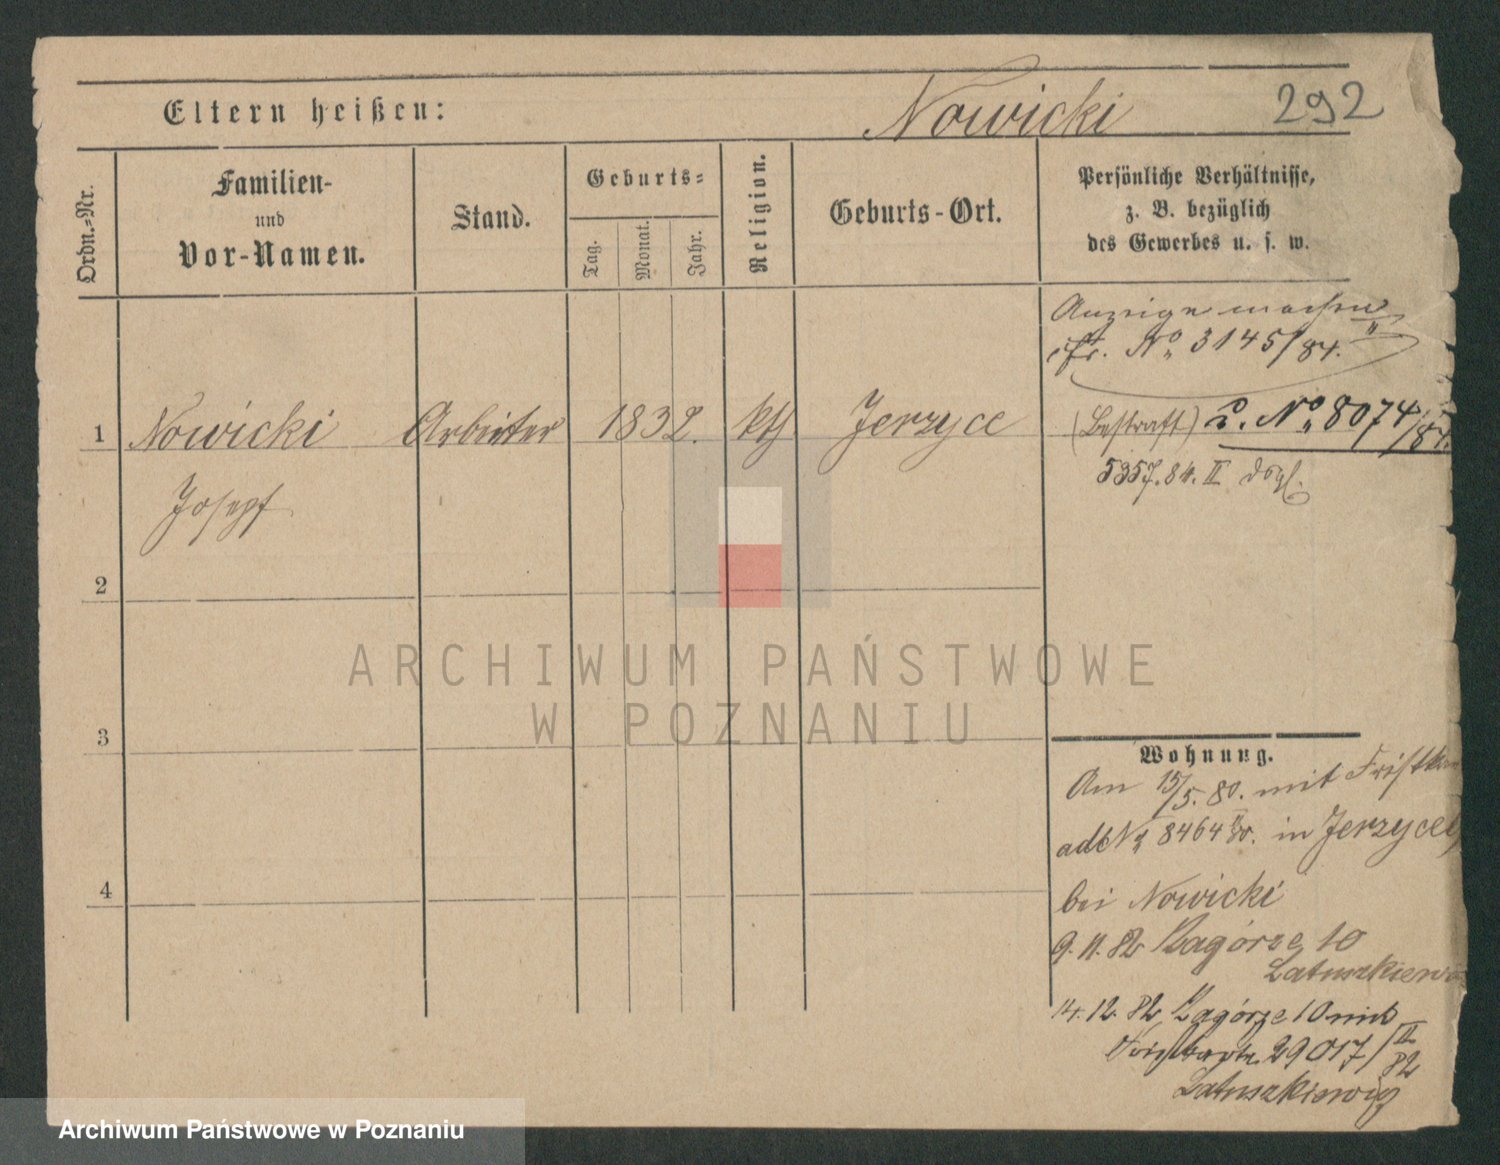 Eltern heißen: Nowicki 292
Ordn.-Nr.
Familien-
und
Vor-Namen.
Stand.
Geburts-
Tag.
Monat.
Jahr.
Religion.
Geburts-Ort.
Persönliche Verhältnisse,
z. B. bezüglich
des Gewerbes u. s. w.
Anzeige machen
No 3145/84.
1 Nowicki Arbeiter 1832. kth Jerzyce
Josepf
(Bestraft) No 8074/84.
5357.84. II dsgl.
2
3
4
Wohnung.
Am 15/5. 80. mit
8464 in Jerzyce
bei Nowicki
9.11.82 Zagórze 10
14.12.82 Zagórze 10 mit
29017/II 82
Latuszkiewicz
ARCHIWUM PAŃSTWOWE
W POZNANIU
Archiwum Państwowe w Poznaniu